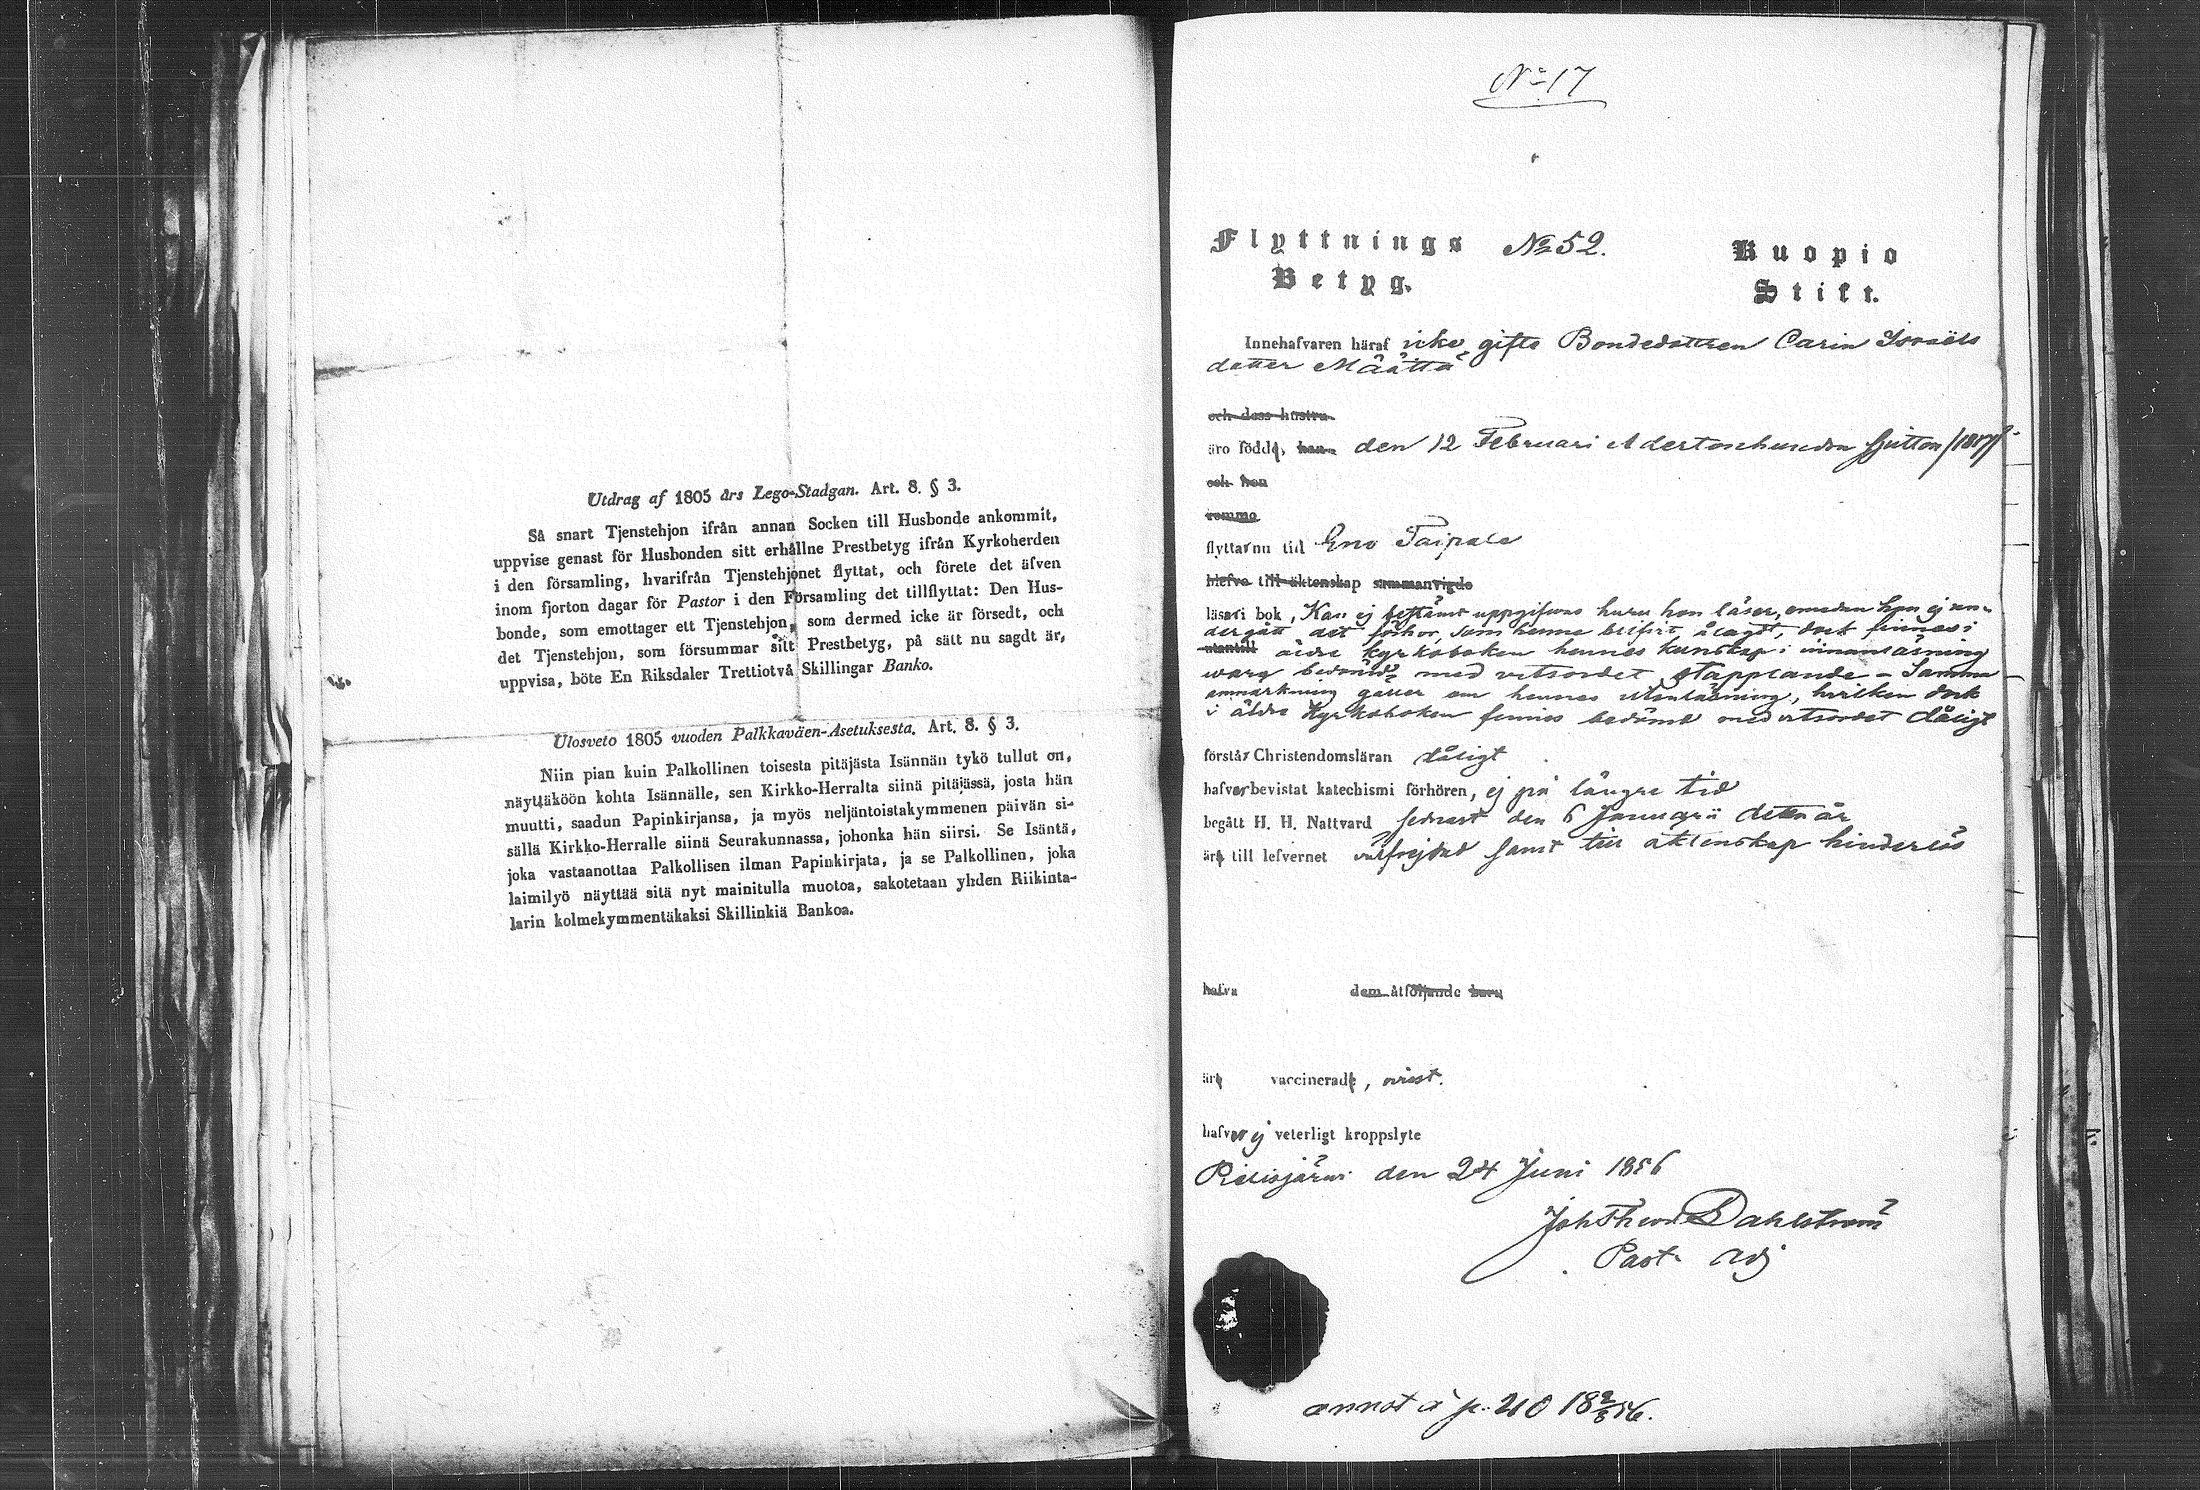 Utdrag af 1805 års Lego-Stadgan. Art. 8. § 3.
Så snart Tjenstehjon ifrån annan Socken till Husbonde ankommit,
uppvise genast för Husbonden sitt erhållne Prestbetyg ifrån Kyrkoherden
i den församling, hvarifrån Tjenstehjonet flyttat, och förete det äfven
inom fjorton dagar för Pastor i den Församling det tillflyttat: Den Hus-
bonde, som emottager ett Tjenstehjon, som dermed icke är försedt, och
det Tjenstehjon, som försummar sitt Prestbetyg, på sätt nu sagdt är,
uppvisa, böte En Riksdaler Trettiotvå Skillingar Banko.
Ulosveto 1805 vuoden Palkkaväen-Asetuksesta. Art. 8. § 3.
Niin pian kuin Palkollinen toisesta pitäjästa Isännän tykö tullut on,
näyttäköön kohta Isännälle, sen Kirkko-Herralta siinä pitäjässä, josta hän
muutti, saadun Papinkirjansa, ja myös neljäntoistakymmenen päivän si-
sällä Kirkko-Herralle siinä Seurakunnassa, johonka hän siirsi. Se Isäntä,
joka vastaanottaa Palkollisen ilman Papinkirjata, ja se Palkollinen, joka
laimilyö näyttää sitä nyt mainitulla muotoa, sakotetaan yhden Riikinta-
larin kolmekymmentäkaksi Skillinkiä Bankoa.
No 17
Flyttnings No 52. Kuopio
Betyg. Stift.
Innehafvaren häraf icke gifta Bondedottren Carin Israels
dotter Määttä
och dess hustru
äro födde, han den 12 Februari Adertonhundra Sjutton /1817/
och hon
komma
flyttar nu till Eno Taipale
blefvo till äktenskap sammanvigde
läser i bok, Kan ej bestämt uppgifvas huru hon läser, emedan hon ej un-
dergått det förhör, som henne blifvit ålagdt, dock finnes i
utantill äldre kyrkoboken hennes kunskap i innanläsning
vara bedömd med vitsordet stapplande - Samma
anmärkning gäller om hennes utanläsning, hvilken dock
i äldre Kyrkoboken finnes bedömd med vitsordet dåligt
förstår Christendomsläran dåligt
hafver bevistat katechismi förhören, ej på längre tid
begått H. H. Nattvard sednast den 6 Januarii detta år
äro till lefvernet välfrejdad samt till äktenskap hinderlös
hafva dem åtföljande barn
äro vaccinerade, visst.
hafver ej veterligt kroppslyte
Pielisjärvi den 24 Juni 1856
Joh Theod Dahlström
Past. Adj
annot à p. 210 18 2/8 56.